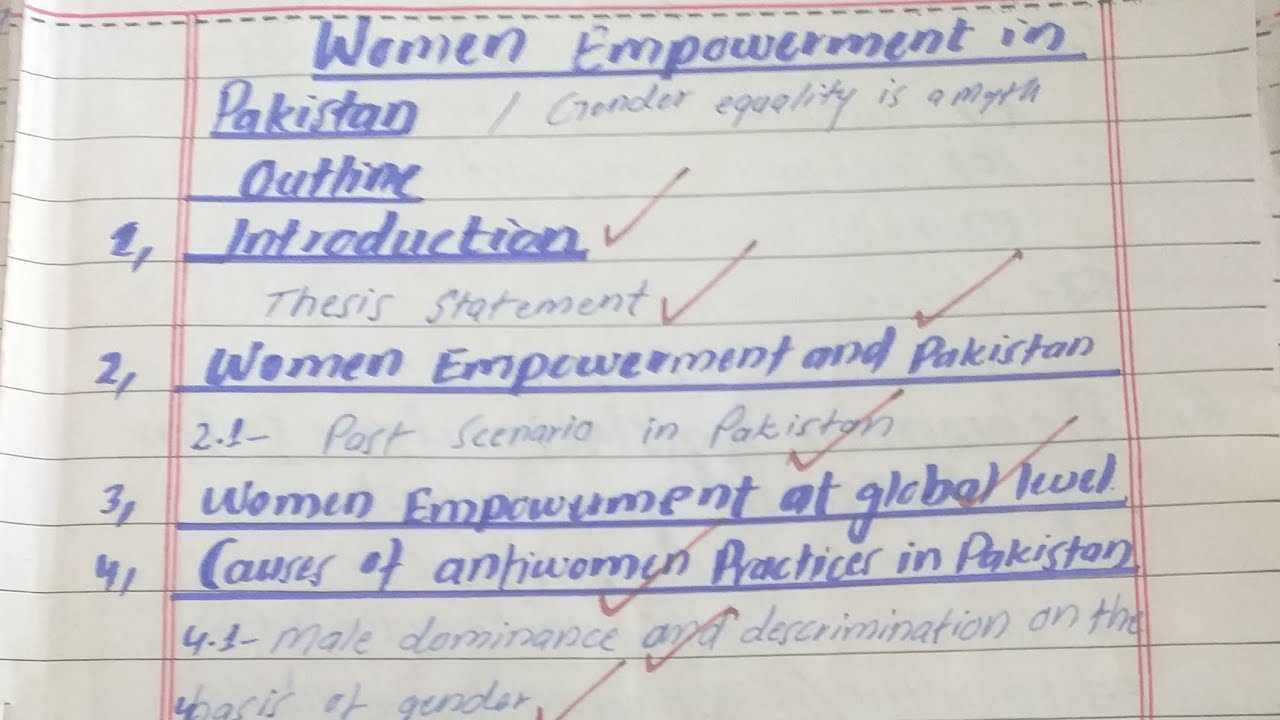 Women Empowerment in
Pakistan / Gender equality is a myth
Outline
1, Introduction
Thesis Statement
2, Women Empowerment and Pakistan
2.1- Past Scenario in Pakistan
3, Women Empowerment at global level.
4, Causes of antiwomen Practices in Pakistan
4.1- Male dominance and descrimination on the
basis of gender